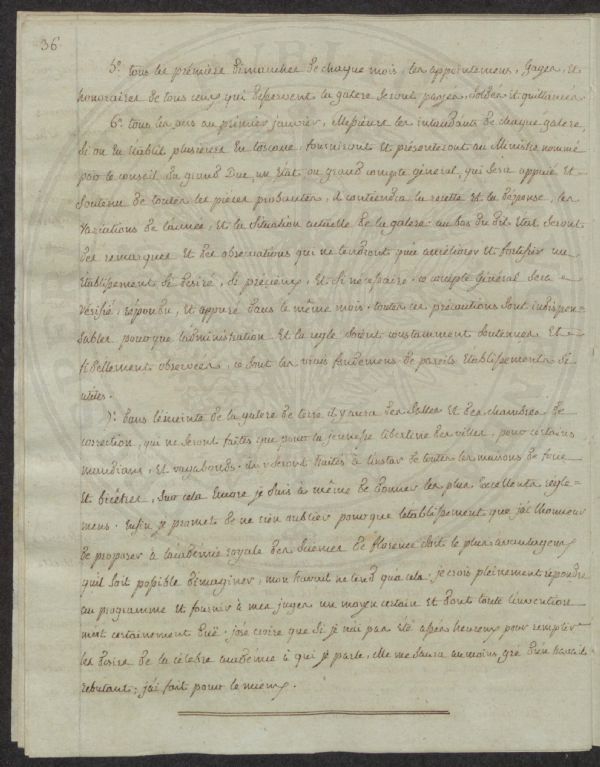 36
5.º tous les premiers dimanches de chaque mois, les appointemens, gages, et
honoraires de tous ceux qui desservent la galere seront payés, soldés et quittancés
6.º tous les ans au premier janvier, Messieurs les intendants de chaque galere,
si on en etablit plusieurs en toscane, fourniront et présenteront au Ministre nommé
par le conseil du grand Duc, un etat ou grand compte général, qui sera appuié et
soutenu de toutes les pieces probantes, il contiendra la recette et la dépense, les
variations de l'année, et la situation actuelle de la galere. au bas du dit etat seront
des remarques et des observations qui ne tendront qu'a améliorer et fortifier un
etablissement si desiré, si précieux, et si nécessaire. ce compte général sera
vérifié, répondu, et appuré dans le même mois. toutes ces précautions sont indispen-
sables pour que l'administration et la regle soient constamment soutenues et
fidellement observées, ce sont les vrais fondemens de pareils etablissements si
utiles.
7.º dans l'enceinte de la galere de terre il y aura des salles et des chambres de
correction, qui ne seront faites que pour la jeunesse libertine des villes, pour certains
mendians, et vagabonds. ils y seront traités à l'instar de toutes les maisons de force
et bicêtres, sur cela encore je suis à même de donner les plus excellents régle=
mens. enfin je promets de ne rien oublier pour que l'etablissement que j'ai l'honneur
de proposer à l'académie royale des sciences de florence soit le plus avantageux
qu'il soit possible d'imaginer, mon travail ne tend qu'a cela. je crois pleinement répondre
au programme et fournir à mes juges un moyen certain et dont toute l'invention
m'est certainement duë. j'ose croire que si je n'ai pas eté assés heureux pour remplir
les desirs de la célebre académie à qui je parle, elle me saura au moins gré d'un travail
rebutant; j'ai fait pour le mieux.